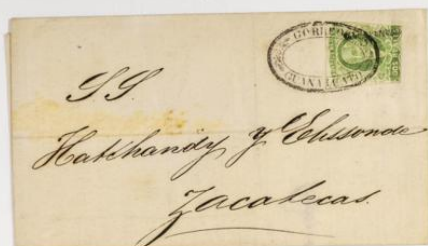 CORREOS
GUANAJUATO
SS.
Hatchandy y Elissonde
Zacatecas.